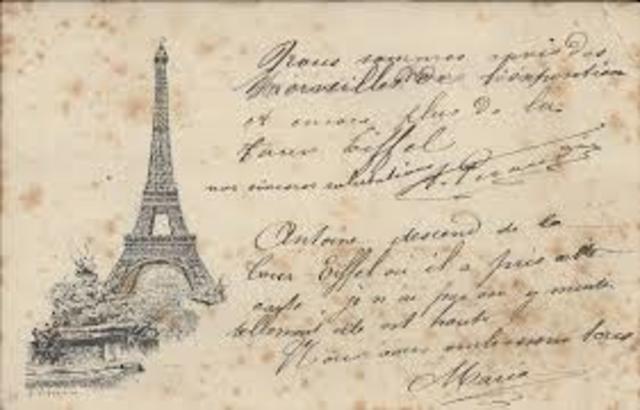 Nous sommes épris des
merveilles de l'exposition
et encore plus de la
tour Eiffel
nos sincères salutations
Antoine descend de la
tour Eiffel ou il a pris cette
carte je n'ai pu y monter
tellement elle est haute
Nous vous embrassons tous
Maria